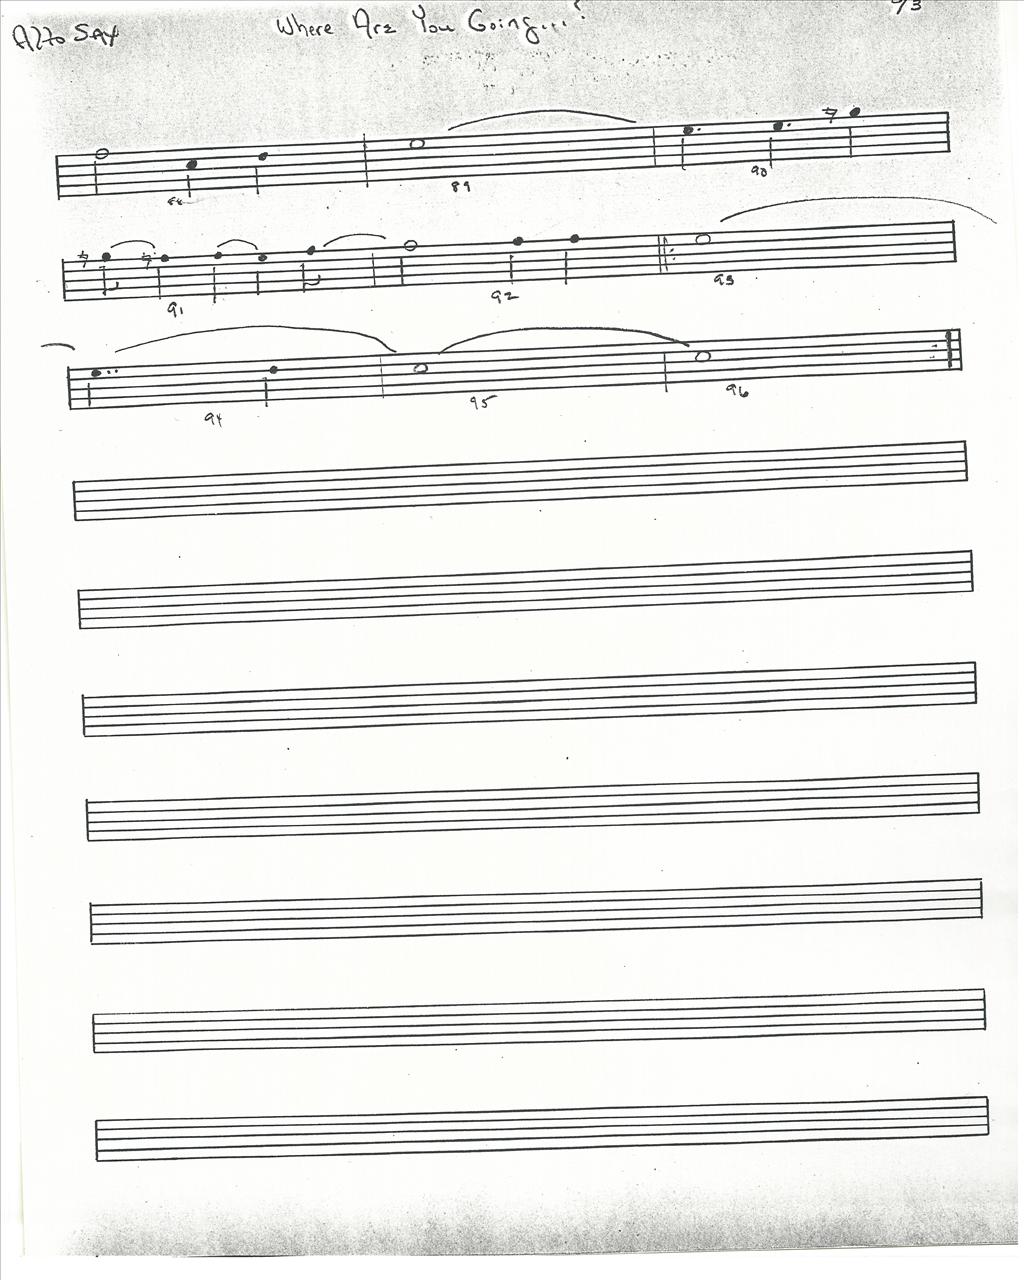 Alto Sax Where Are You Going...?
88 89 90
91 92 93
94 95 96